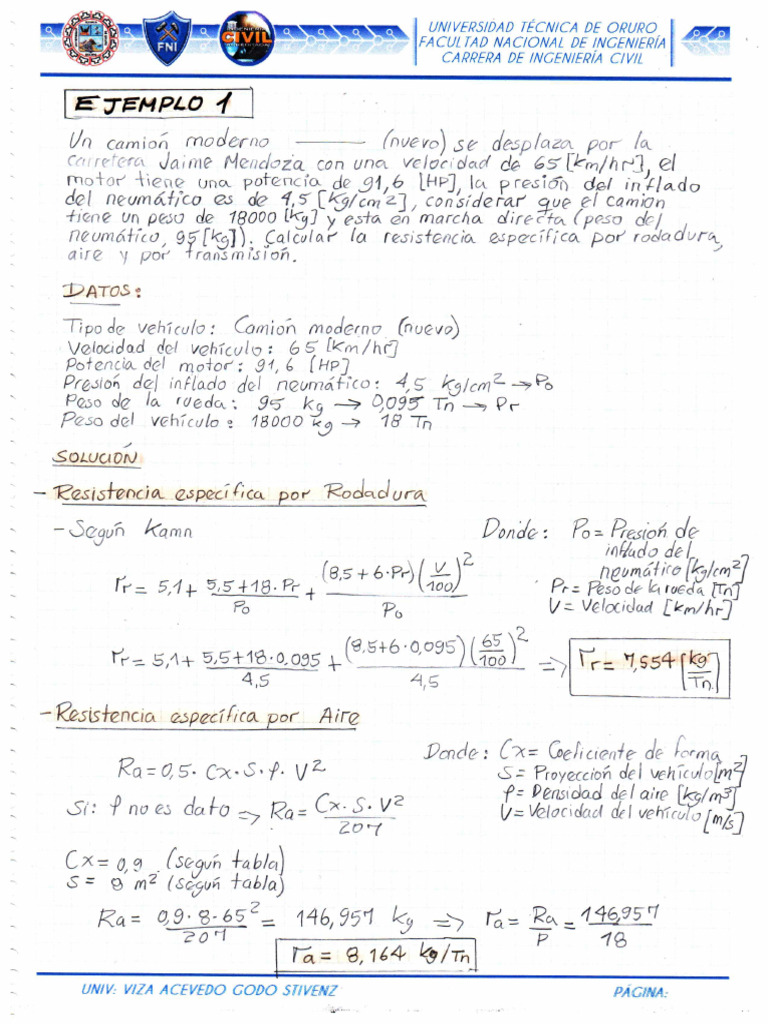 UNIVERSIDAD TÉCNICA DE ORURO
FACULTAD NACIONAL DE INGENIERÍA
CARRERA DE INGENIERÍA CIVIL
FNI
INGENIERIA
CIVIL
EJEMPLO 1
Un camión moderno ——— (nuevo) se desplaza por la
carretera Jaime Mendoza con una velocidad de 65 [km/hr], el
motor tiene una potencia de 91,6 [HP], la presión del inflado
del neumático es de 4,5 [kg/cm2], considerar que el camion
tiene un peso de 18000 [kg] y esta en marcha directa (peso del
neumático, 95 [kg]). Calcular la resistencia específica por rodadura,
aire y por transmisión.
DATOS:
Tipo de vehículo: Camión moderno (nuevo)
Velocidad del vehículo: 65 [km/hr]
Potencia del motor: 91,6 [HP]
Presión del inflado del neumático: 4,5 kg/cm² → Po
Peso de la rueda: 95 kg → 0,095 Tn → Pr
Peso del vehículo: 18000 kg → 18 Tn
SOLUCIÓN
- Resistencia específica por Rodadura
- Según Kamn
Donde: Po = Presión de
inflado del
neumático [kg/cm²]
Pr = Peso de la rueda [Tn]
V = Velocidad [km/hr]
rr = 5,1 + 5,5+18·Pr/Po + (8,5+6·Pr)(V/100)²/Po
rr = 5,1 + 5,5+18·0,095/4,5 + (8,5+6·0,095)(65/100)²/4,5 => rr = 7,554 [kg/Tn]
- Resistencia específica por Aire
Ra = 0,5 · Cx · S · ρ · V²
Donde: Cx = Coeficiente de forma
S = Proyección del vehículo [m²]
ρ = Densidad del aire [kg/m³]
V = Velocidad del vehículo [m/s]
Si: ρ no es dato => Ra = Cx · S · V²/207
Cx = 0,9 (según tabla)
S = 8 m² (según tabla)
Ra = 0,9 · 8 · 65²/207 = 146,957 kg => ra = Ra/P = 146,957/18
ra = 8,164 kg/Tn
UNIV: VIZA ACEVEDO GODO STIVENZ
PÁGINA: